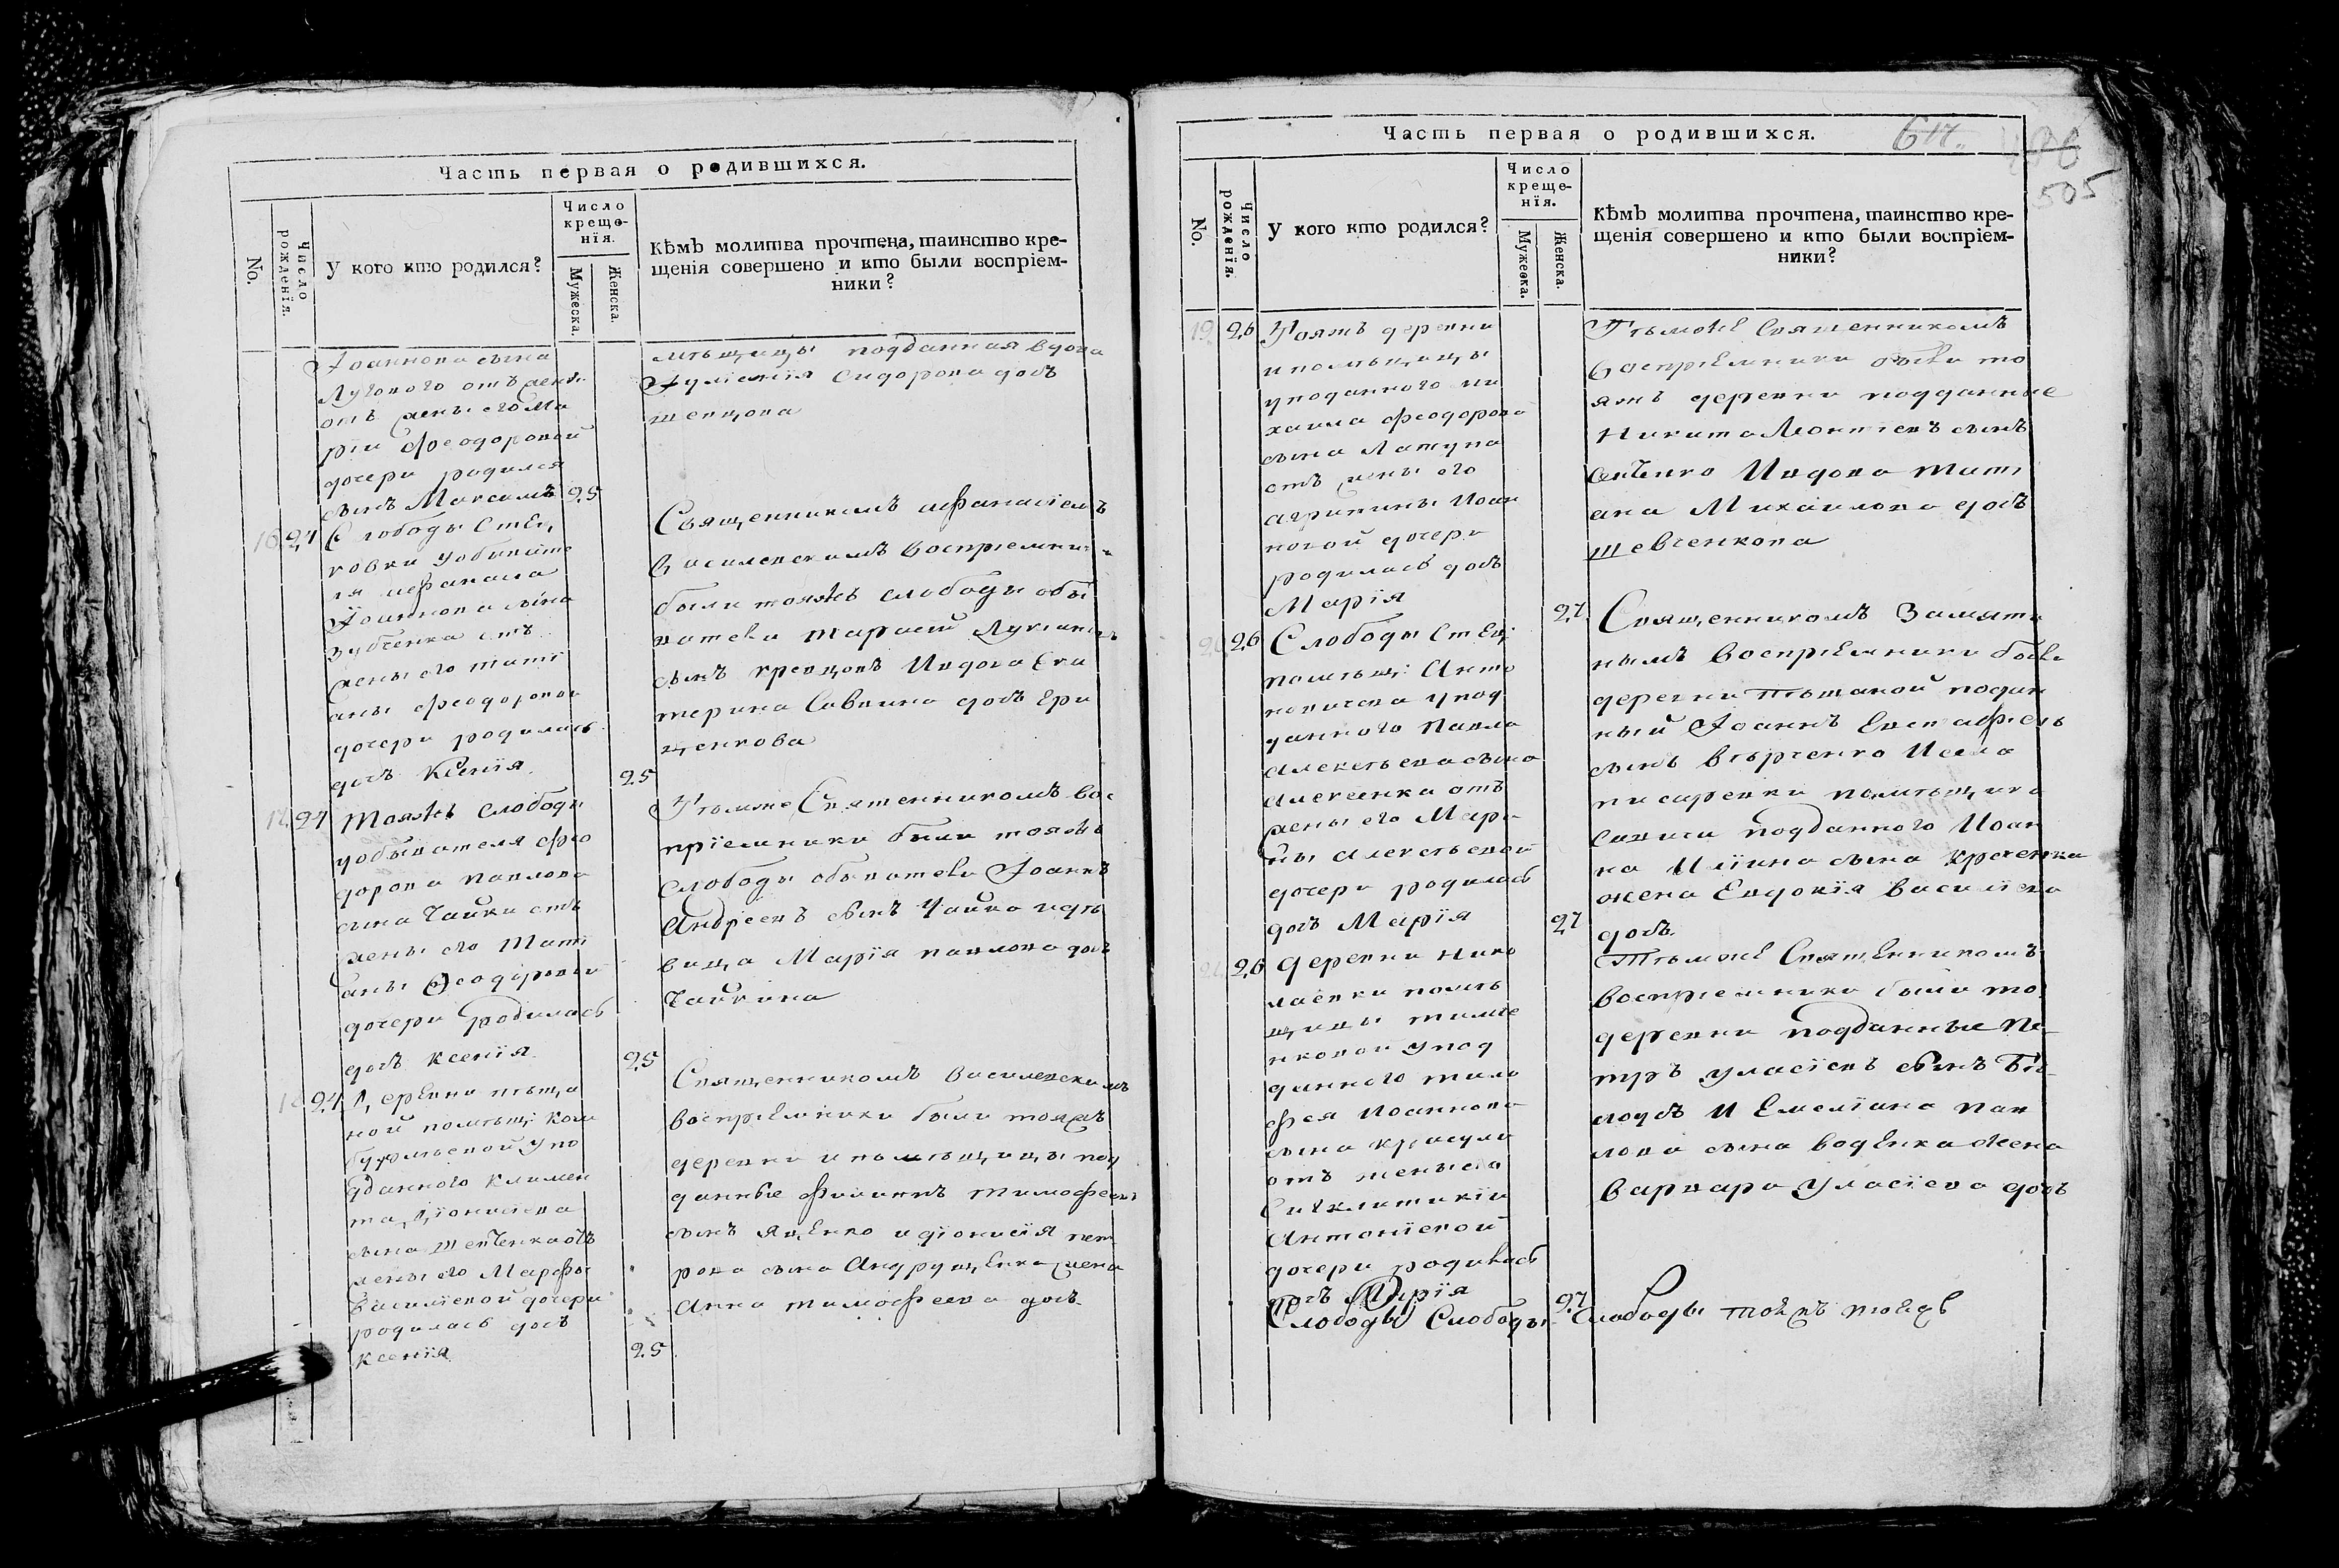 Часть первая о родившихся.
No.
Число рожденїя.
У кого кто родился?
Число
креще-
нїя.
Мужеска.
Женска.
кѢмъ молитва прочтена, таинство кре-
щенія совершено и кто были воспріем-
ники?
Іоаннова сына
Лугового отъ
отъ жены его Ма
ріи Феодоровой
дочери родился
сынъ Максимъ 25
мѣщицы подданная вдова
Іулїанїя Сидорова дочь
шевцова
16 24 Слободы Стец
ковки уобывате
ля Афанасія
Іоаннова сына
зубченка отъ
жены его тати
аны Феодоровой
дочери родилась
дочь Ксенїя 25
Священникомъ Афанасіемъ
Василевскимъ воспрїемники
были тояжъ слободы обы
ватели тарасій Лукіановъ
сынъ кревцовъ И вдова Ека
терина Саввина дочь Гри
щенкова
17 24 Тояжъ слободы
уобывателя Фео
дора павлова
сына Чайки отъ
жены его Тати
аны Феодоровой
дочери родилась
дочь ксенїя 25
Тѣмже Священникомъ вос
прїемники были тояжъ
слободы обыватели Іоаннъ
Андреевъ сынъ Чайка и дѣ
вица Марїя павлова дочь
Чайкина
18 24 Деревни пѣща
ной помѣщ:
упо
дданного климен
та Дїонисїева
сына Шевченка отъ
жены его Марфы
Василїевой дочери
родилась дочь
Ксенїя 25
Священникомъ Василевскимъ
воспрїемники были тояжъ
деревни и помѣщицы под
данные Филиппъ тимофеевъ
сынъ яценко и дїонисїя пет
рова сына Андрущенка жена
Анна тимофеева дочь
Часть первая о родившихся.
617.
505
No.
Число рожденїя.
У кого кто родился?
Число
креще-
нїя.
Мужеска.
Женска.
кѢмъ молитва прочтена, таинство кре-
щенія совершено и кто были воспріем-
ники?
19 26 Тояжъ деревни
и помѣщицы
уподданного ми
хаила Феодорова
сына Латуна
отъ жены его
агрипины Иоан
новой дочери
родилась дочь
Марїя 27
Тѣможе Священникомъ
воспрїемники были то
яжъ деревни подданные
Никита Леонтїевъ сынъ
И вдова тати
ана Михаилова дочь
шевченкова
20 26 Слободы Стец:
помѣщ: Анто
упод
данного павла
алексѣева сына
алексенка отъ
жены его Мари
ны алексѣевой
дочери родилась
дочь Марїя 27
Священникомъ Замяти
нымъ воспрїемники были
деревни пѣщаной поддан
ный Іоаннъ Евстафїевъ
сынъ И села
писаревки помѣщика
савича подданного Иоан
на Илїина сына кравченка
жена Евдокїя василїева
дочь
21 26 деревни Нико
лаевки помѣ
щицы тимче
нковой упод
данного тимо
фея Иоаннова
сына красули
отъ жены его
Сигклитикїи
Антонїевой
дочери родилась
дочь Марїя 27
Тѣмже Священникомъ
воспрїемники были то
деревни подданные Пе
тръ уласїевъ сынъ Бѣ
лоусъ И Емелїана пав
лова сына воденка жена
варвара уласїева дочь
Слободы Слободы Слободы